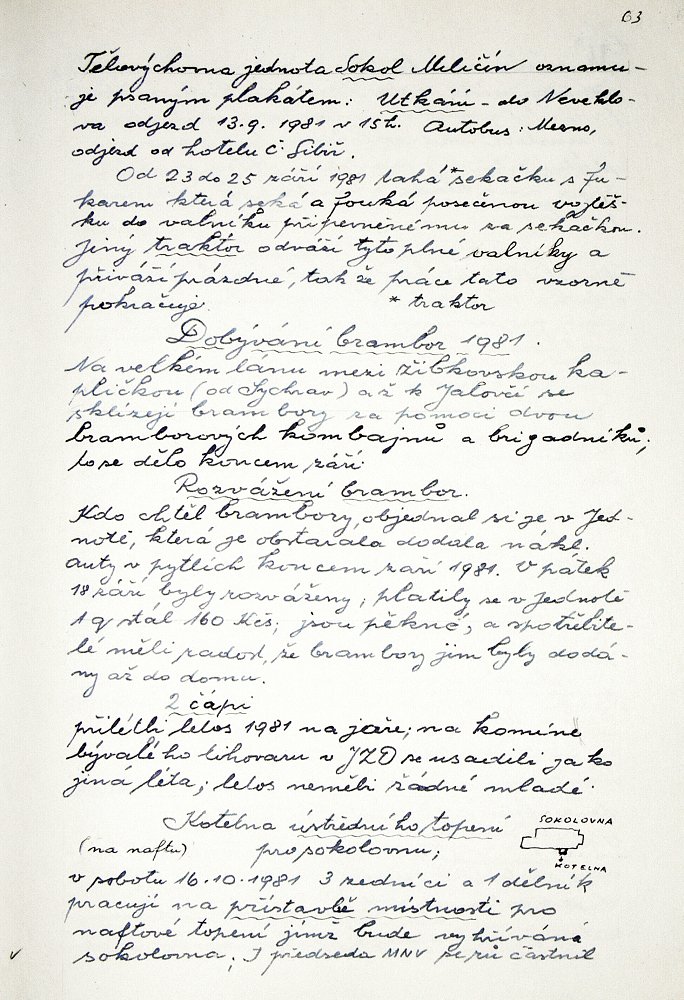 63
Tělovýchovná jednota Sokol Miličín oznamu-
je psaným plakátem: Utkání - do Neveklo-
va odjezd 13.9. 1981 v 15h. Autobus: Mesno,
odjezd od hotelu č. Sibiř.
Od 23 do 25 září 1981 tahá *sekačku s fu-
karem která seká a fouká posečenou vojtěš-
ku do valníku připevněnému za sekačkou.
Jiný traktor odváží tyto plné valníky a
přiváží prázdné, tak že práce tato vzorně
pokračuje. * traktor
Dobývání brambor 1981.
Na velkém lánu mezi Žibkovskou ka-
pličkou (od Sychrav) až k Jalovčí se
sklízejí brambory za pomoci dvou
bramborových kombajnů a brigadníků;
to se dělo koncem září.
Rozvážení brambor.
Kdo chtěl brambory, objednal si je v Jed-
notě, která je obstarala dodala nákl.
auty v pytlích koncem září 1981. V pátek
18 září byly rozváženy; platily se v Jednotě
1 q stál 160 Kčs; jsou pěkné, a spotřebite-
lé měli radost, že brambory jim byly dodá-
ny až do domu.
2 čápi
přilétli letos 1981 na jaře; na komíně
bývalého lihovaru v JZD se usadili jako
jiná léta; letos neměli žádné mladé.
Kotelna ústředního topení SOKOLOVNA
(na naftu) pro sokolovnu; KOTELNA
v sobotu 16.10.1981 3 zedníci a 1 dělník
pracují na přístavbě místnosti pro
naftové topení jímž bude vyhřívána
sokolovna; I předseda MNV se zúčastnil